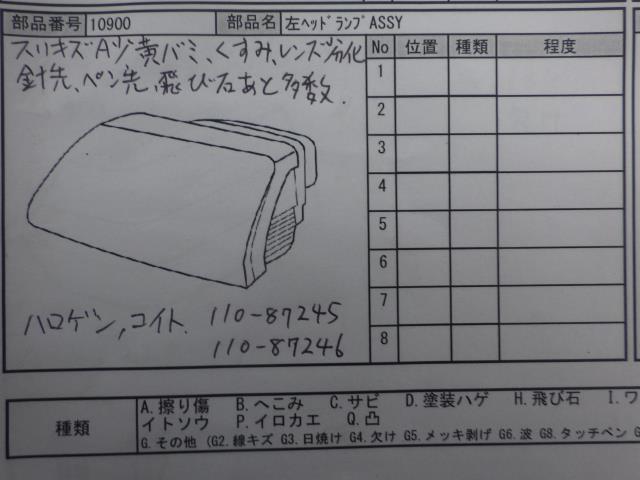 部品番号 10900 部品名 左ヘッドランプASSY
スリキズA少黄バミ、くすみ、レンズ劣化
針先、ペン先、飛び石あと多数.
No 位置 種類 程度
1
2
3
4
5
6
7
8
ハロゲン, コイト. 110-87245
110-87246
種類
A. 擦り傷 B. へこみ C. サビ D. 塗装ハゲ H. 飛び石 I. ワ
イトソウ P. イロカエ Q. 凸
G. その他 (G2. 線キズ G3. 日焼け G4. 欠け G5. メッキ剥げ G6. 波 G8. タッチペン G